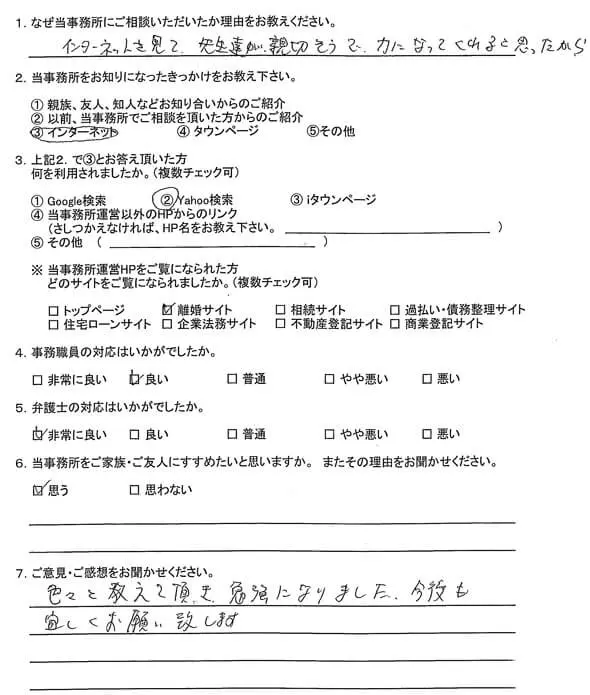 1. なぜ当事務所にご相談いただいたか理由をお教えください。
インターネットを見て、先生達が、親切そうで、力になってくれると思ったから
2. 当事務所をお知りになったきっかけをお教え下さい。
① 親族、友人、知人などお知り合いからのご紹介
② 以前、当事務所でご相談を頂いた方からのご紹介
③ インターネット ④ タウンページ ⑤その他
3. 上記2. で③とお答え頂いた方
何を利用されましたか。(複数チェック可)
① Google検索 ②Yahoo検索 ③ iタウンページ
④ 当事務所運営以外のHPからのリンク
(さしつかえなければ、HP名をお教え下さい。 )
⑤ その他 ( )
※ 当事務所運営HPをご覧になられた方
どのサイトをご覧になられましたか。(複数チェック可)
□ トップページ ☑ 離婚サイト □ 相続サイト □ 過払い・債務整理サイト
□ 住宅ローンサイト □ 企業法務サイト □ 不動産登記サイト □ 商業登記サイト
4. 事務職員の対応はいかがでしたか。
□ 非常に良い ☑ 良い □ 普通 □ やや悪い □ 悪い
5. 弁護士の対応はいかがでしたか。
☑ 非常に良い □ 良い □ 普通 □ やや悪い □ 悪い
6. 当事務所をご家族・ご友人にすすめたいと思いますか。 またその理由をお聞かせください。
☑ 思う □ 思わない
7. ご意見・ご感想をお聞かせください。
色々と教えて頂き、勉強になりました。今後も
宜しくお願い致します